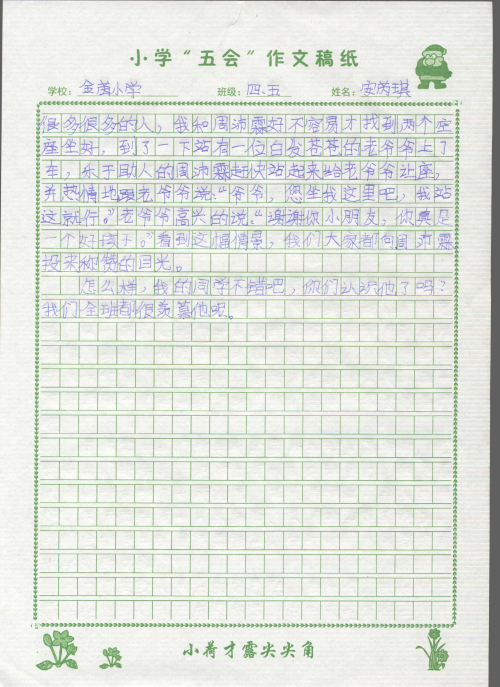 小学“五会”作文稿纸
学校：金茵小学 班级：四、五 姓名：安芮琪
很多很多的人，我和周沛霖好不容易才找到两个空
座坐好，到了一下站有一位白发苍苍的老爷爷上了
车，乐于助人的周沛霖赶快站起来给老爷爷让座，
并热情地跟老爷爷说：“爷爷，您坐我这里吧，我站
这就行。”老爷爷高兴的说：“谢谢你小朋友，你真是
一个好孩子。”看到这幅情景，我们大家都向周沛霖
投来称赞的目光。
怎么样，我的同学不错吧，你们认识他了吗？
我们全班都很羡慕他呢。
小荷才露尖尖角